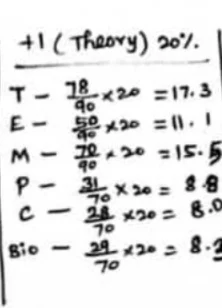 +1 (Theory) 20%.
T - 78/90 × 20 = 17.3
E - 50/90 × 20 = 11.1
M - 70/90 × 20 = 15.5
P - 31/70 × 20 = 8.8
C - 28/70 × 20 = 8.0
Bio - 29/70 × 20 = 8.2